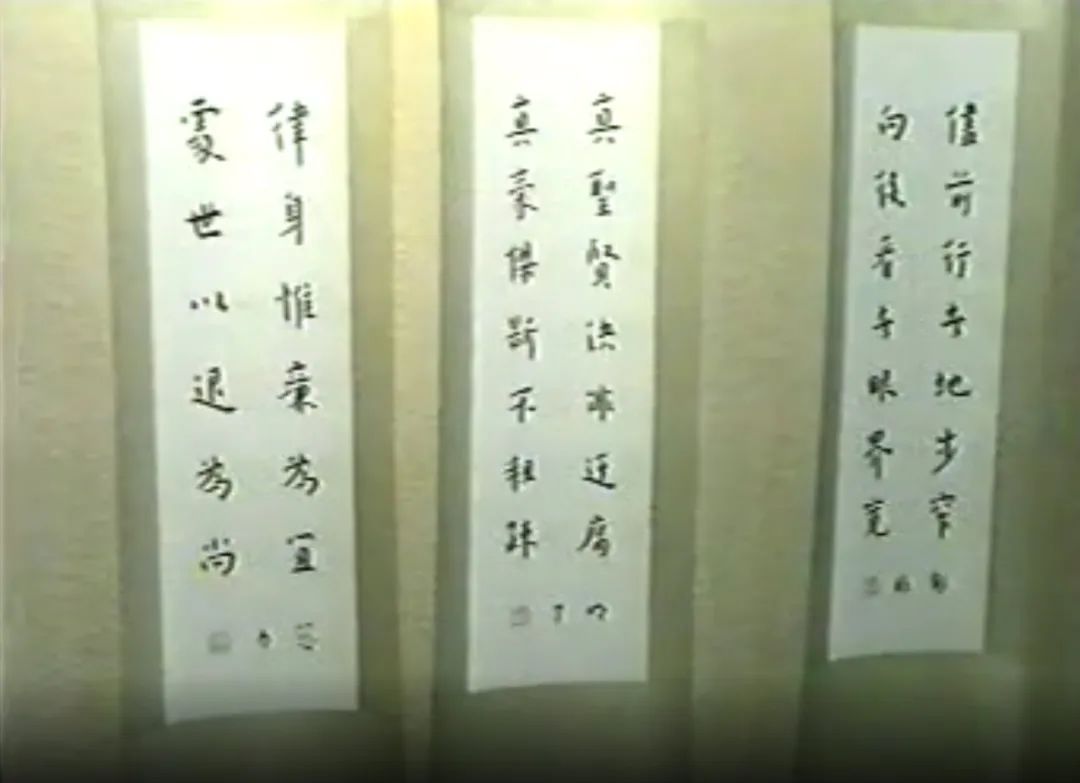 儘前行者地步窄
向後看者眼界寬
真聖賢決非迂腐
真豪傑斷不粗疎
律身惟廉為宜
處世以退為尚